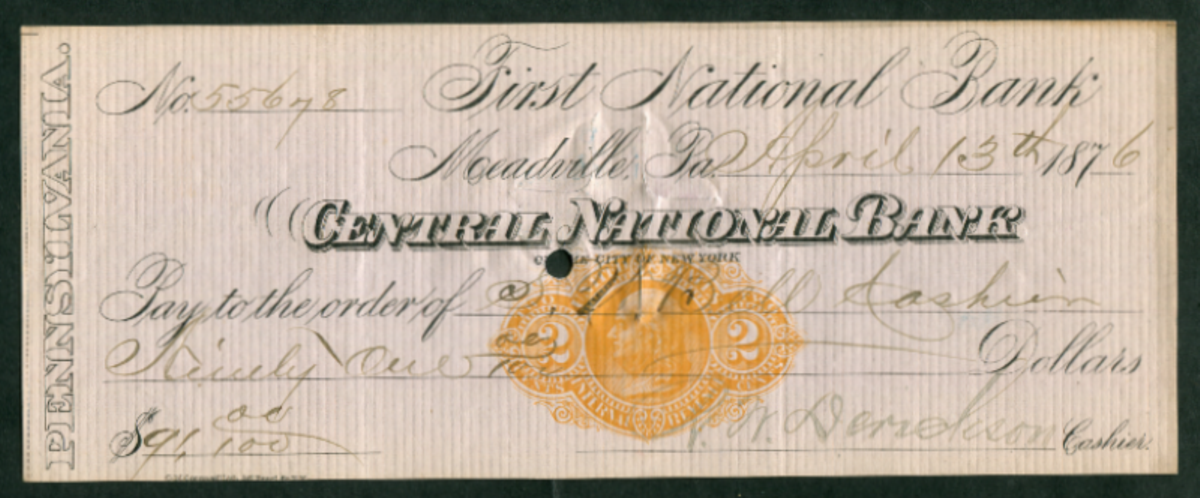 PENNSYLVANIA.
No. 55678 First National Bank
Meadville, Pa. April 13th 1876
CENTRAL NATIONAL BANK
OF THE CITY OF NEW YORK
Pay to the order of Cashier
Ninety One 00/100 Dollars
2 2
$91,00/100 Derickson Cashier.